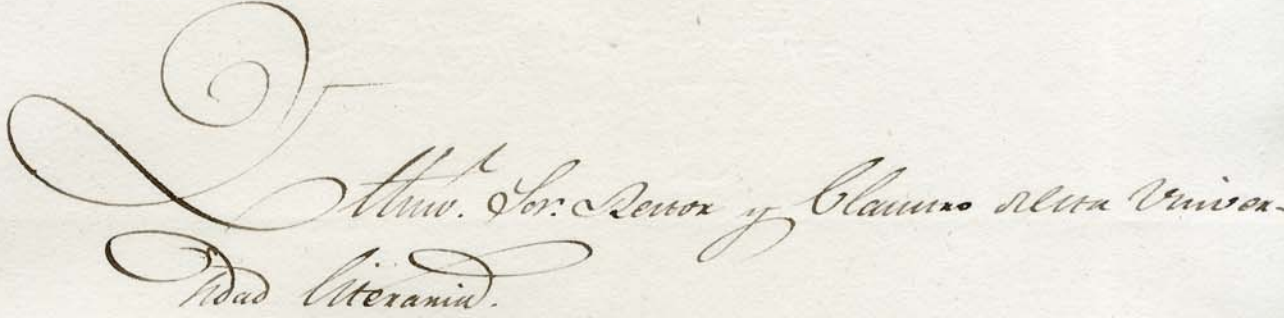 Illmo. Sor. Rector y Claustro de esta Univer-
sidad Literaria.